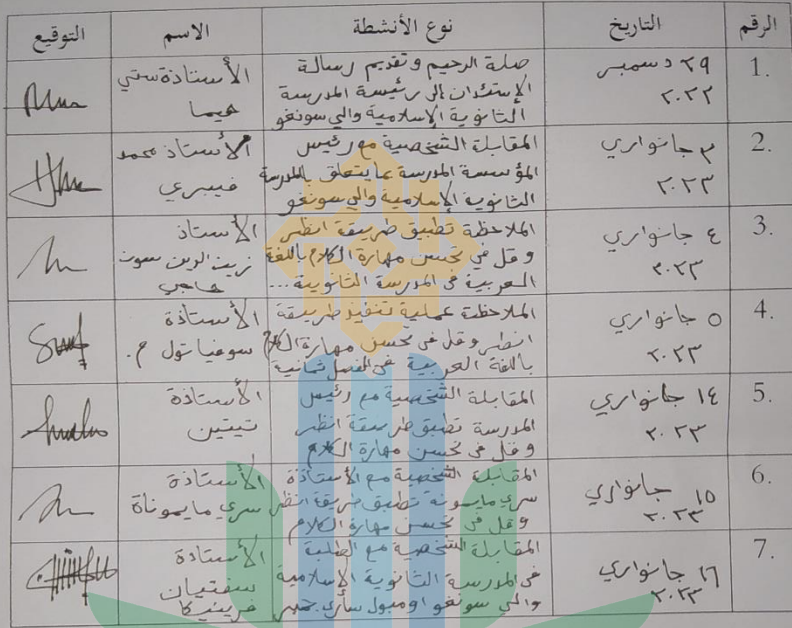 الرقم التاريخ نوع الأنشطة الاسم التوقيع
1. ٢٩ دسمبر ٢٠٢٢
صلة الرحيم وتقديم رسالة
الإستئذان إلى رئيسة المدرسة
الثانوية الإسلامية والي سونغو
الأستاذة ستي
هيما
2. ٣ جانواري ٢٠٢٣
المقابلة الشخصية مع رئيس
المؤسسة المدرسة عما يتعلق بالمدرسة
الثانوية الإسلامية والي سونغو
الأستاذ محمد
فيبري
3. ٤ جانواري ٢٠٢٣
الملاحظة تطبيق طريقة انظر
وقل في تحسن مهارة الكلام باللغة
العربية في المدرسة الثانوية...
الأستاذ
زين الدين
حاجي
4. ٥ جانواري ٢٠٢٣
الملاحظة عملية تنفيذ طريقة
انظر وقل في تحسن مهارة الكلام
باللغة العربية في الفصل ثمانية
الأستاذة
سوفياتول م.
5. ١٤ جانواري ٢٠٢٣
المقابلة الشخصية مع رئيس
المدرسة تطبيق طريقة انظر
وقل في تحسن مهارة الكلام
الأستاذة
تيتين
6. ١٥ جانواري ٢٠٢٣
المقابلة الشخصية مع الأستاذة
سري مايمونة تطبيق طريقة انظر
وقل في تحسن مهارة الكلام
الأستاذة
سري مايموناة
7. ١٦ جانواري ٢٠٢٣
المقابلة الشخصية مع الطلبة
في المدرسة الثانوية الإسلامية
والي سونغو اومبول ساري جمبر
الأستاذة
سفتيان
فرينيكا